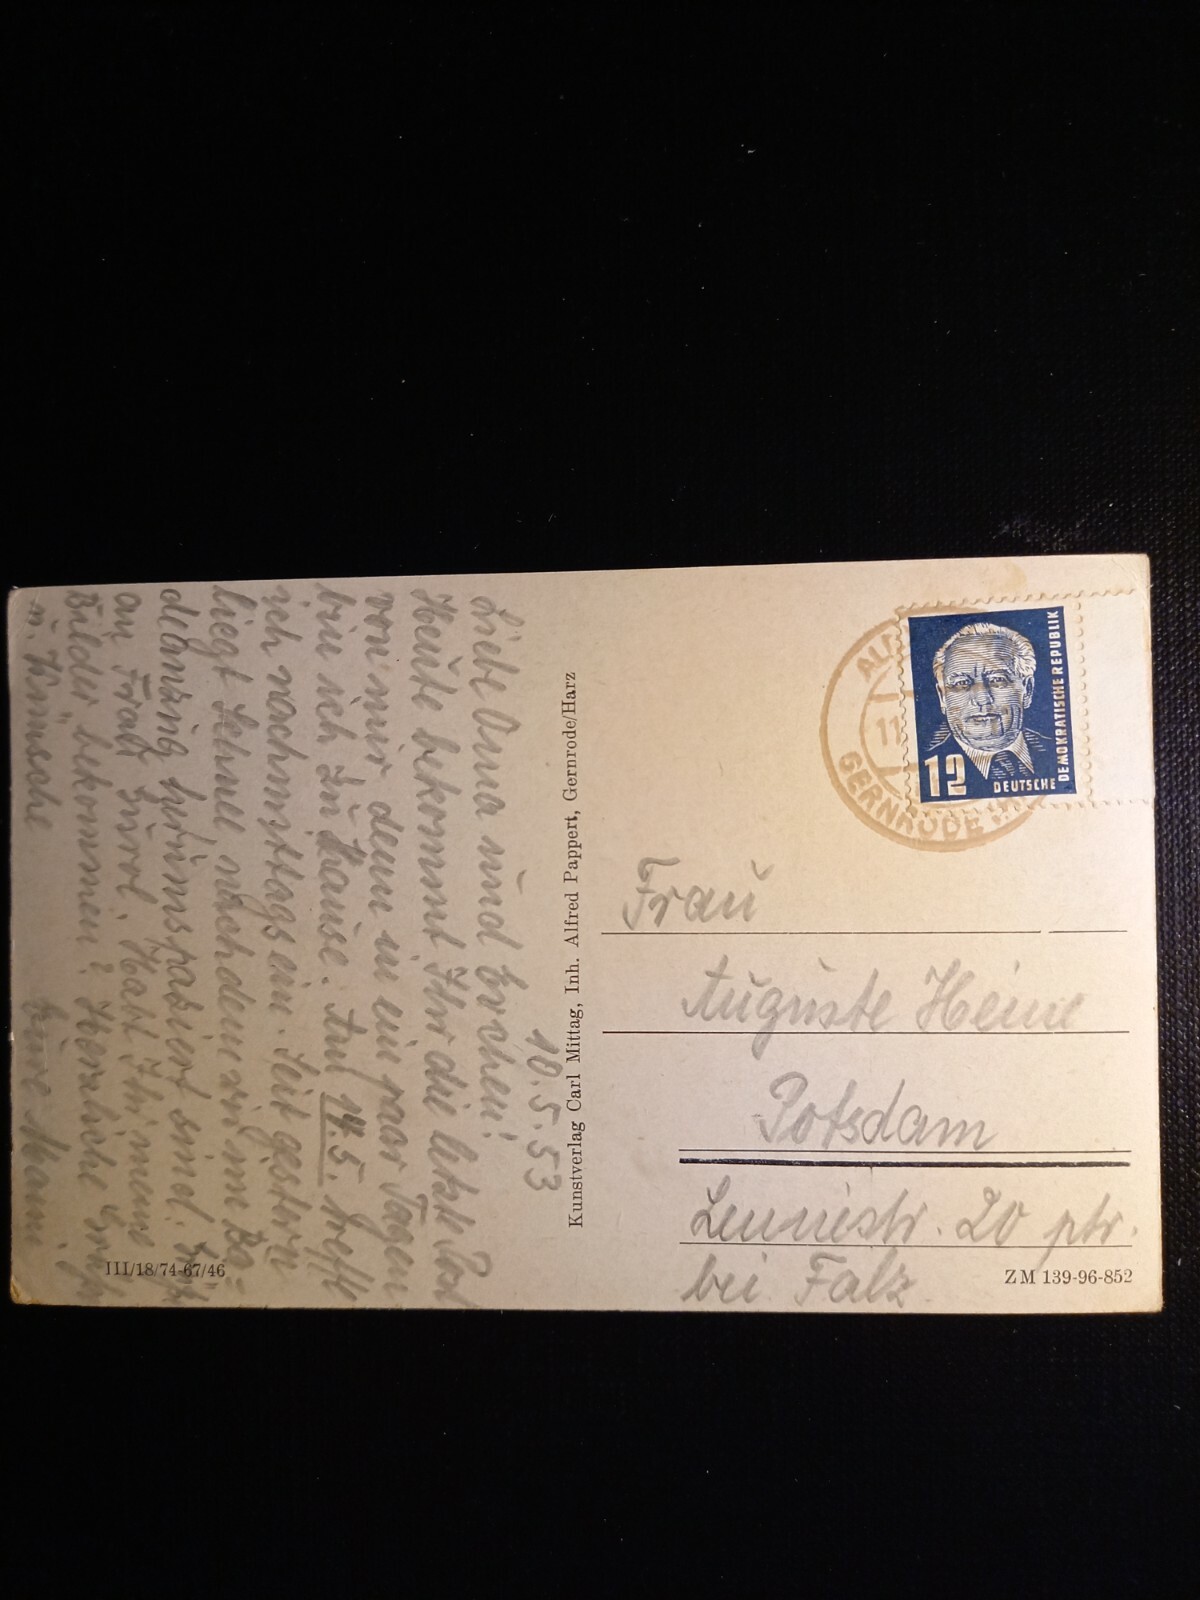 10.5.53
Liebe Oma und Evchen!
Heute bekommt Ihr die letzte Post
von mir denn in ein paar Tagen
bin ich zu Hause. Am 14.5. treffe
ich nachmittags ein. Seit gestern
liegt Schnee, nachdem wir im Ba-
deanzug rumspaziert sind.
an Frau zurück. Habt Ihr meine
Bilder bekommen? Herzliche Grüße
u. Küsse
Eure Mami
III/18/74-67/46
Kunstverlag Carl Mittag, Inh. Alfred Pappert, Gernrode/Harz
11
GERNRODE
12
DEUTSCHE
DEMOKRATISCHE REPUBLIK
Frau
Auguste Heine
Potsdam
Lennéstr. 20 ptr.
bei Falz
ZM 139-96-852